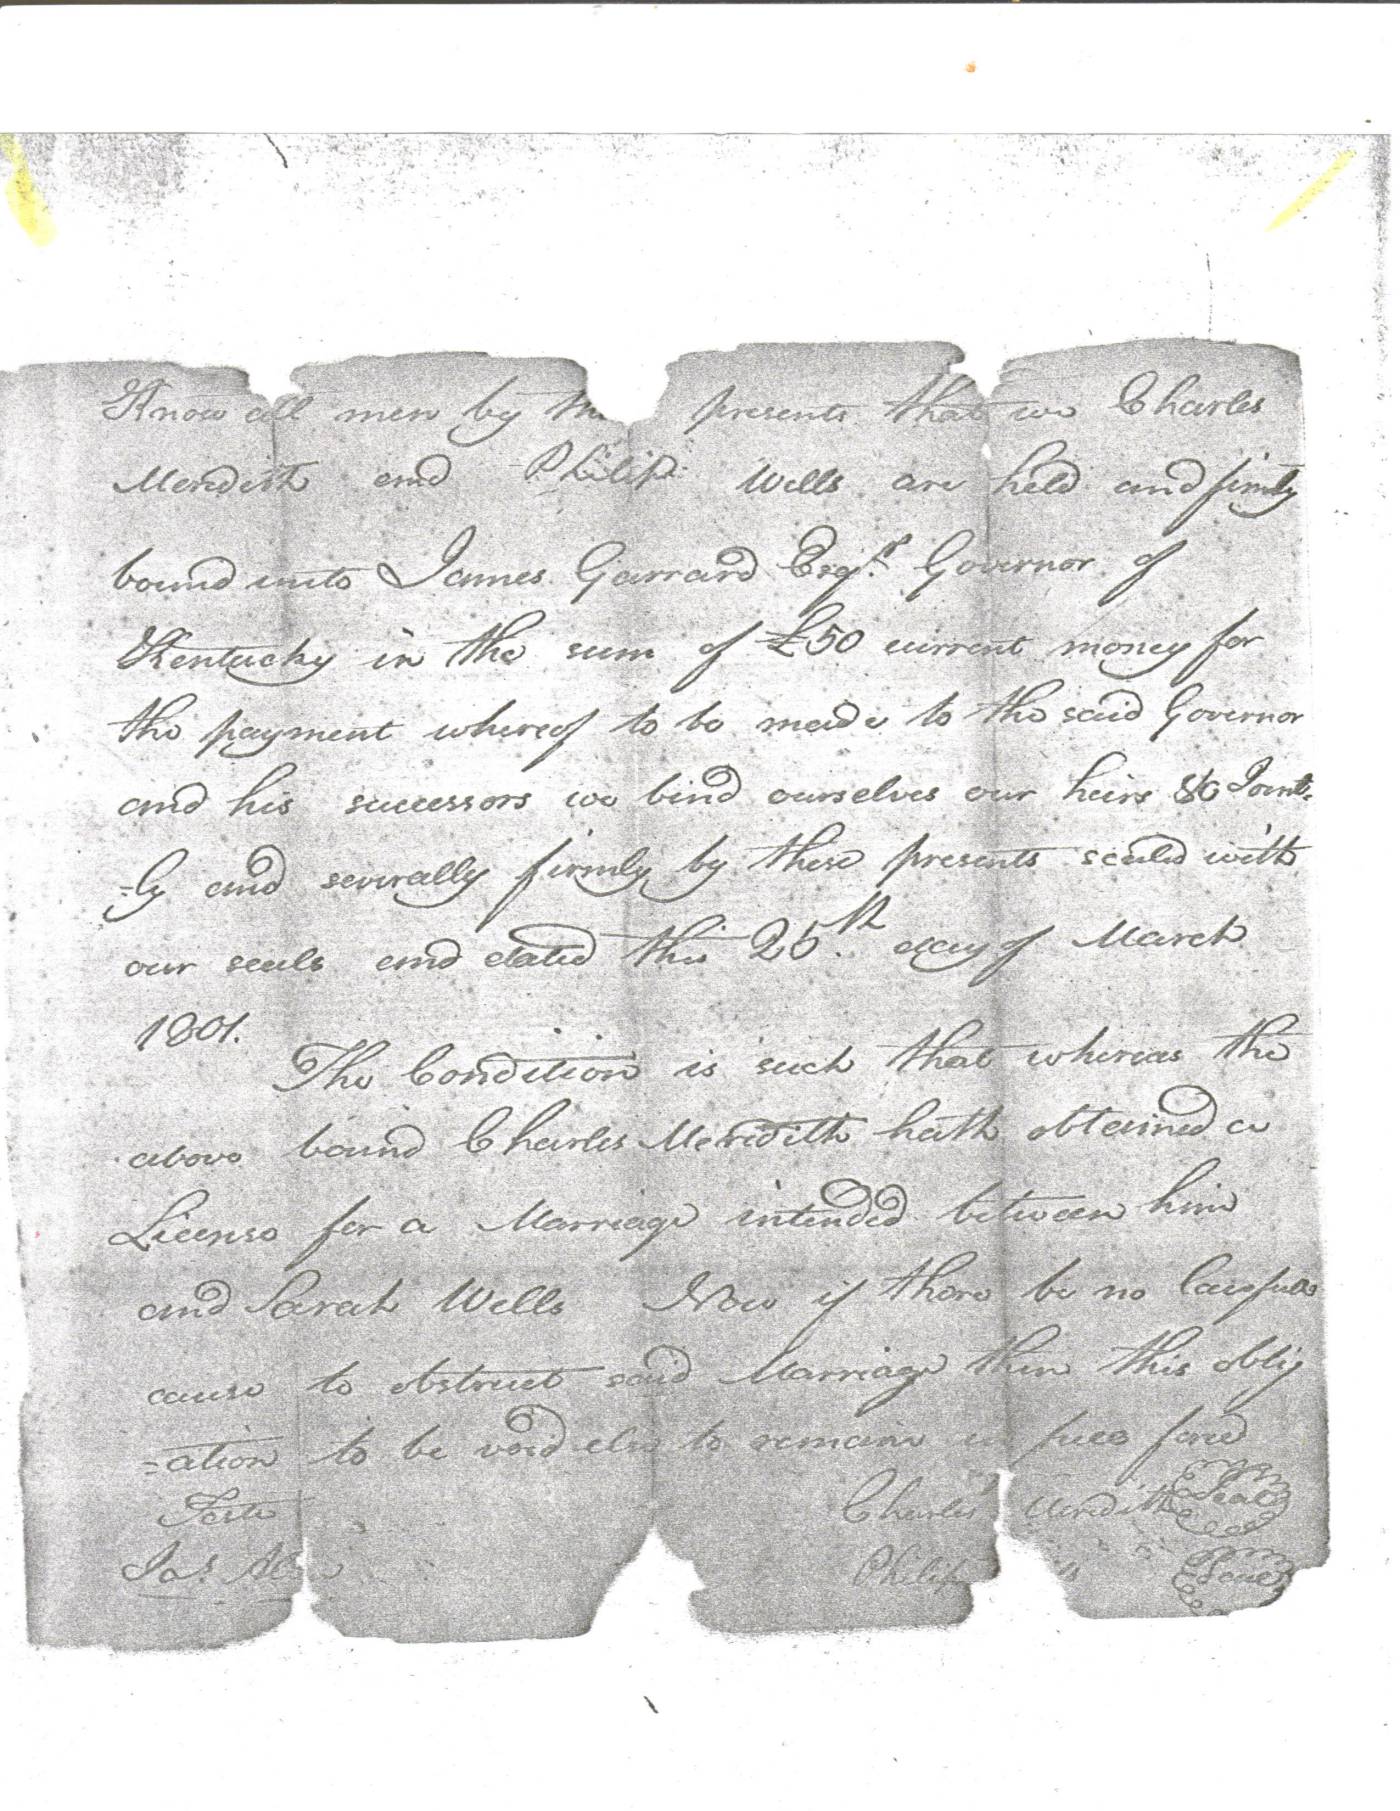 Know all men by the presents that we Charles
Meredith and Philip Wells are held and firmly
bound unto James Garrard Esqr. Governor of
Kentucky in the sum of £50 current money for
the payment whereof to be made to the said Governor
and his successors we bind ourselves our heirs &c Joint=
=ly and severally firmly by these presents sealed with
our seals and dated this 25th. day of March
1801.
The Condition is such that whereas the
above bound Charles Meredith hath obtained a
License for a Marriage intended between him
and Sarah Wells Now if there be no lawfull
cause to obstruct said Marriage then this oblig
=ation to be void else to remain in full force
Teste Charles Meredith Seal
Jas. Philip Seal